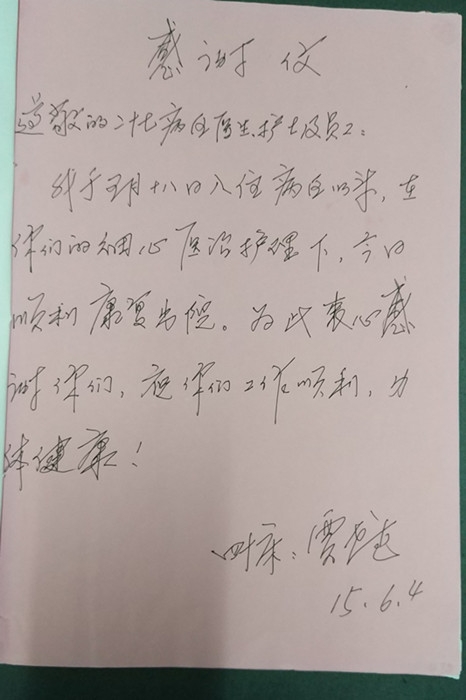 感谢仪
尊敬的二十七病区医生护士及员工：
我于五月十八日入住病区以来，在
你们的细心医治护理下，今日
顺利康复出院。为此衷心感
谢你们，祝你们工作顺利，身
体健康！
四床：贾
15.6.4